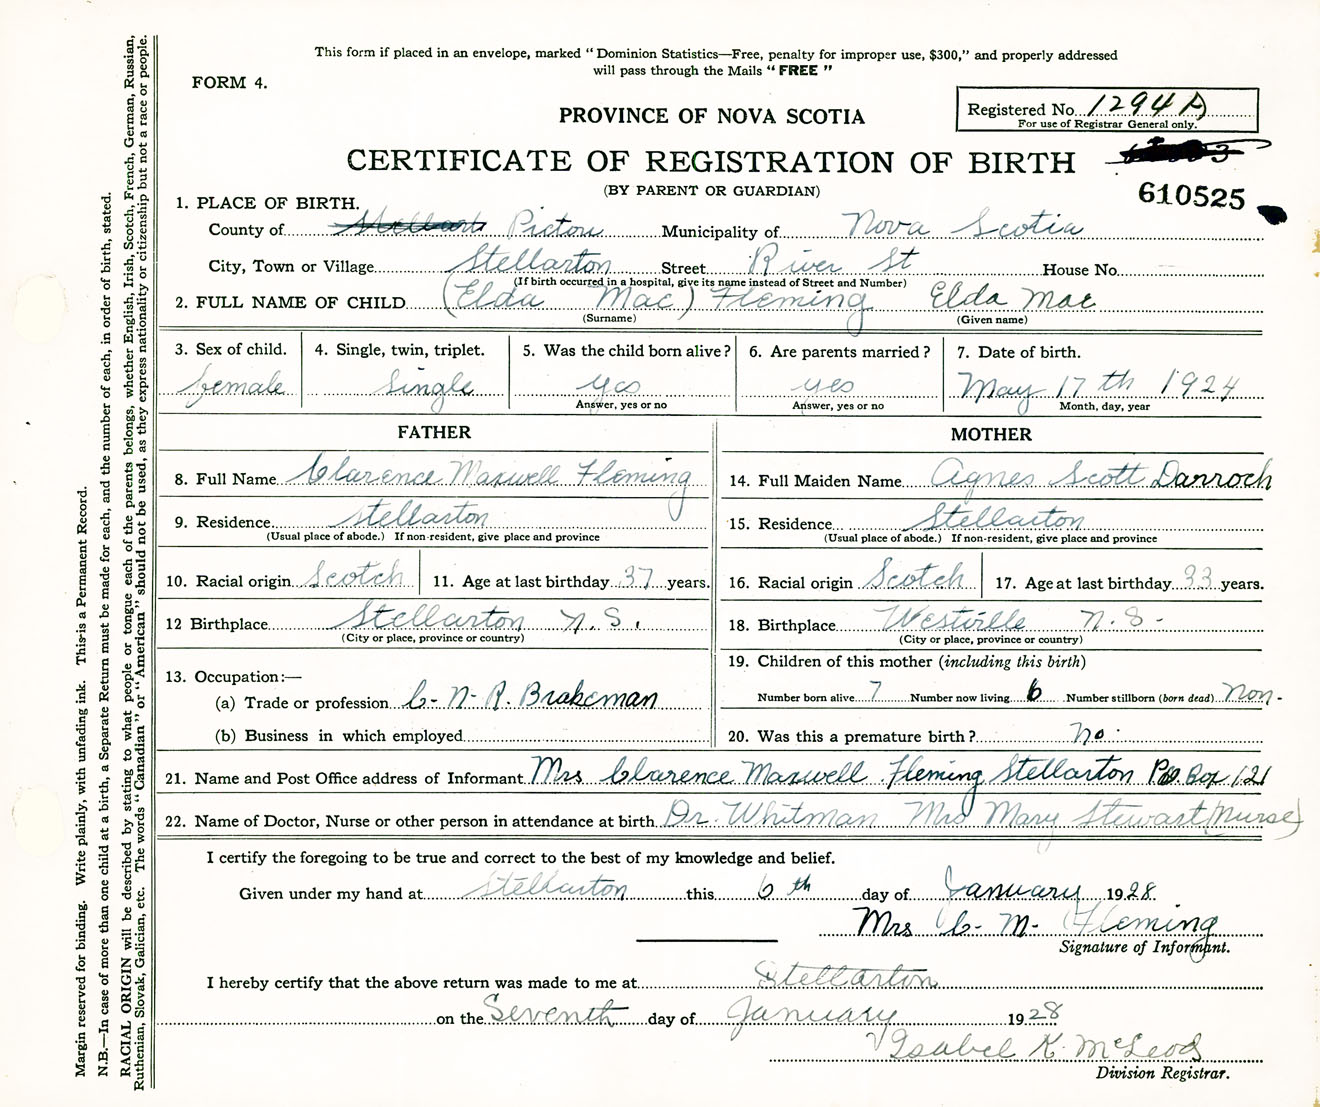 This form if placed in an envelope, marked “ Dominion Statistics—Free, penalty for improper use, $300,” and properly addressed
will pass through the Mails “ FREE ”
FORM 4.
PROVINCE OF NOVA SCOTIA
Registered No. 1294 A
For use of Registrar General only.
CERTIFICATE OF REGISTRATION OF BIRTH
(BY PARENT OR GUARDIAN)
610525
1. PLACE OF BIRTH.
County of Pictou Municipality of Nova Scotia
City, Town or Village Stellarton Street River St House No.
(If birth occurred in a hospital, give its name instead of Street and Number)
2. FULL NAME OF CHILD (Elda Mac) Fleming Elda Mac
(Surname) (Given name)
3. Sex of child. 4. Single, twin, triplet. 5. Was the child born alive? 6. Are parents married? 7. Date of birth.
female Single yes yes May 17th 1924
Answer, yes or no Answer, yes or no Month, day, year
FATHER MOTHER
8. Full Name Clarence Maxwell Fleming 14. Full Maiden Name Agnes Scott Darroch
9. Residence Stellarton 15. Residence Stellarton
(Usual place of abode.) If non-resident, give place and province (Usual place of abode.) If non-resident, give place and province
10. Racial origin Scotch 11. Age at last birthday 37 years. 16. Racial origin Scotch 17. Age at last birthday 33 years.
12 Birthplace Stellarton N.S. 18. Birthplace Westville N.S.
(City or place, province or country) (City or place, province or country)
19. Children of this mother (including this birth)
13. Occupation:—
(a) Trade or profession C-N-R. Brakeman Number born alive 7 Number now living 6 Number stillborn (born dead) non-
(b) Business in which employed 20. Was this a premature birth? No.
21. Name and Post Office address of Informant Mrs Clarence Maxwell Fleming Stellarton P.O. Box 121
22. Name of Doctor, Nurse or other person in attendance at birth Dr. Whitman Mrs Mary Stewart (Nurse)
I certify the foregoing to be true and correct to the best of my knowledge and belief.
Given under my hand at Stellarton this 6th day of January 1928.
Mrs C- M- Fleming
Signature of Informant.
I hereby certify that the above return was made to me at Stellarton
on the Seventh day of January 1928
Isabel K. McLeod
Division Registrar.
Margin reserved for binding. Write plainly, with unfading ink. This is a Permanent Record.
N.B.—In case of more than one child at a birth, a Separate Return must be made for each, and the number of each, in order of birth, stated.
RACIAL ORIGIN will be described by stating to what people or tongue each of the parents belongs, whether English, Irish, Scotch, French, German, Russian,
Ruthenian, Slovak, Galician, etc. The words “ Canadian ” or “ American ” should not be used, as they express nationality or citizenship but not a race or people.